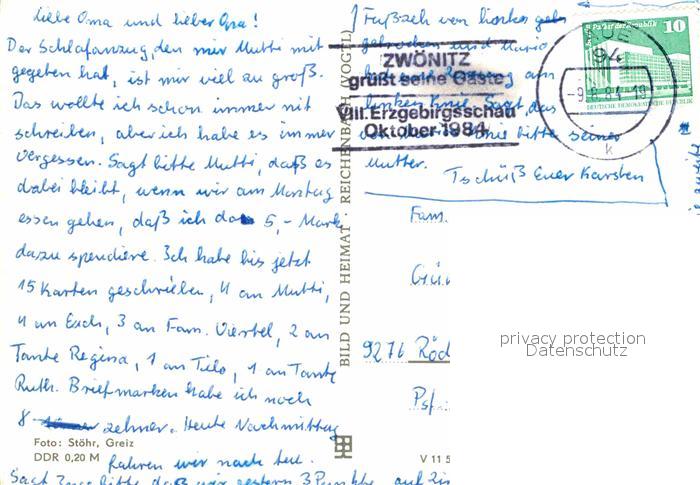 liebe Oma und lieber Opa!
Der Schlafanzug, den mir Mutti mit
gegeben hat, ist mir viel zu groß.
Das wollte ich schon immer mit
schreiben, aber ich habe es immer
vergessen. Sagt bitte Mutti, daß es
dabei bleibt, wenn wir am Montag
essen gehen, daß ich da 5,- Mark
dazu spendiere. Ich habe bis jetzt
15 Karten geschrieben, 4 an Mutti,
4 an Euch, 3 an Fam. Viertel, 2 an
Tante Regina, 1 an Tilo, 1 an Tante
Ruth. Briefmarken habe ich noch
8 zehner. Heute Nachmittag
fahren wir nach
Sagt bitte, daß wir gestern 3 Punkte auf
Foto: Stöhr, Greiz
DDR 0,20 M
V 11 5
BILD UND HEIMAT REICHENBACH (VOGTL)
Fußzeh von
und
am
linken Knie. Sagt das
bitte seiner
Mutter.
Tschüß Euer Karsten
ZWÖNITZ
grüßt seine Gäste
VIII. Erzgebirgsschau
Oktober 1984
Palast der Republik 10
DEUTSCHE DEMOKRATISCHE REPUBLIK
AUE
94
-9.8.84-18
k
Fam.
9271 Röd
privacy protection
Datenschutz